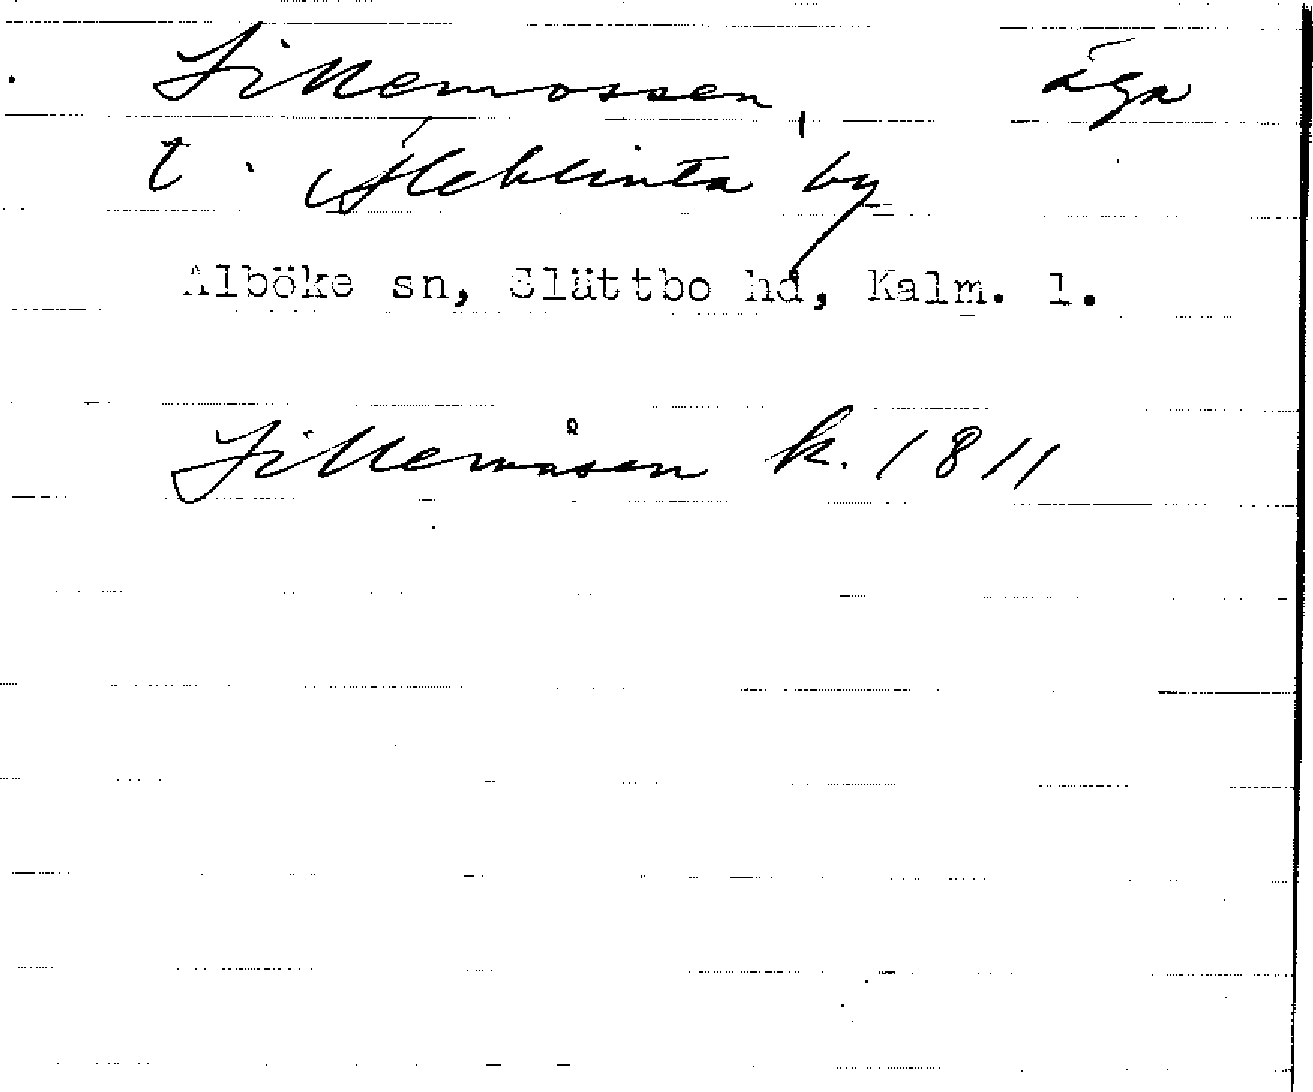 Sillemossen, äga
t. Äleklinta by
Alböke sn, Slättbo hd, Kalm. l.
Sillemåsen k. 1811